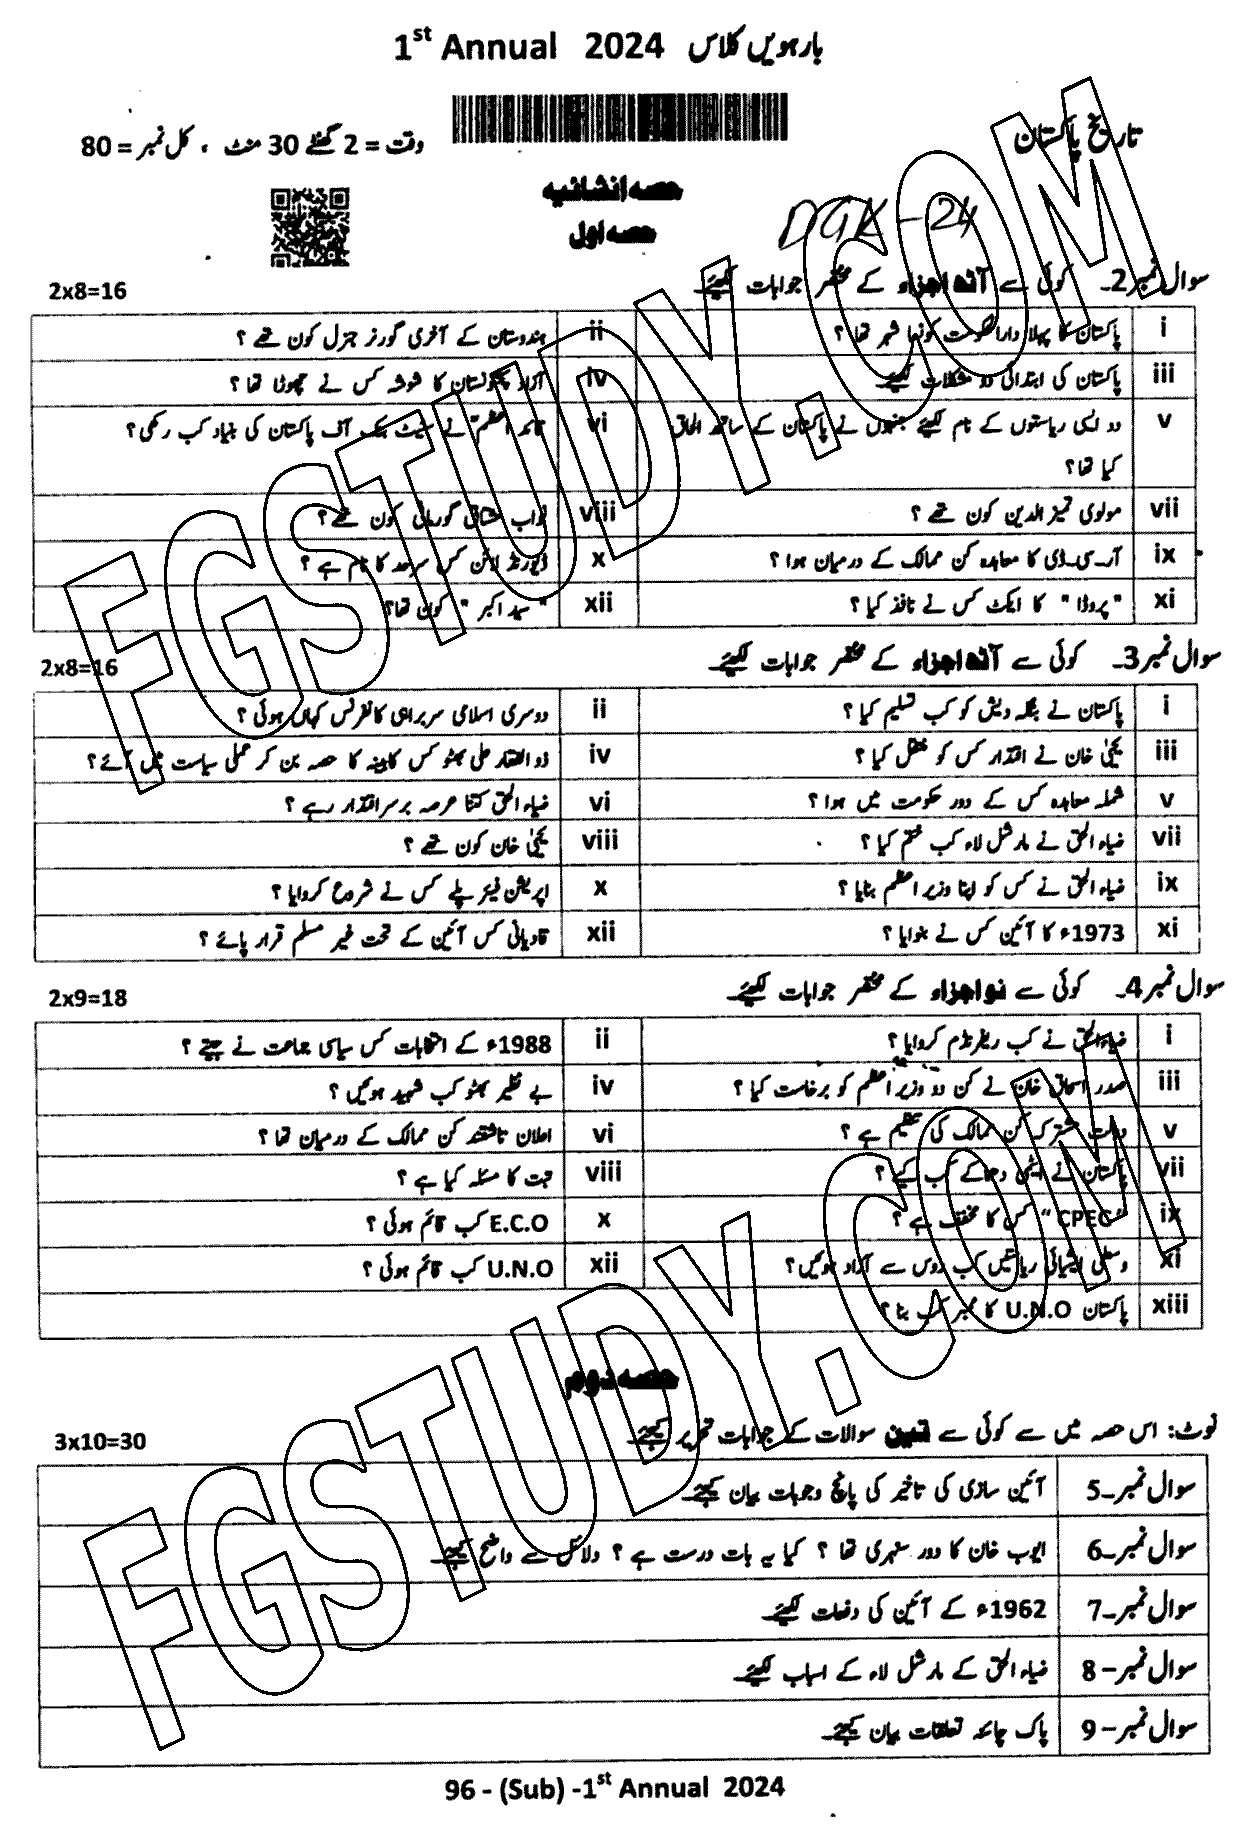 بارہویں کلاس 1st Annual 2024
تاریخ پاکستان
وقت = 2 گھنٹے 30 منٹ ، کل نمبر = 80
حصہ انشائیہ
DGK-24
حصہ اول
سوال نمبر 2۔ کوئی سے آٹھ اجزاء کے مختصر جوابات لکھیے۔ 2x8=16
i پاکستان کا پہلا دارالحکومت کونسا شہر تھا ؟
ii ہندوستان کے آخری گورنر جنرل کون تھے ؟
iii پاکستان کی ابتدائی دو مشکلات لکھیے۔
iv آزاد پختونستان کا شوشہ کس نے چھوڑا تھا ؟
v دو ایسی ریاستوں کے نام لکھیے جنہوں نے پاکستان کے ساتھ الحاق
کیا تھا؟
vi قائد اعظمؒ نے سٹیٹ بنک آف پاکستان کی بنیاد کب رکھی؟
vii مولوی تمیز الدین کون تھے ؟
viii نواب مشتاق گورمانی کون تھے؟
ix آر۔سی۔ڈی کا معاہدہ کن ممالک کے درمیان ہوا ؟
x ڈیورنڈ لائن کس سرحد کا نام ہے ؟
xi "پروڈا" کا ایکٹ کس نے نافذ کیا ؟
xii "سید اکبر" کون تھا؟
سوال نمبر 3۔ کوئی سے آٹھ اجزاء کے مختصر جوابات لکھیے۔ 2x8=16
i پاکستان نے بنگلہ دیش کو کب تسلیم کیا ؟
ii دوسری اسلامی سربراہی کانفرنس کہاں ہوئی ؟
iii یحییٰ خان نے اقتدار کس کو منتقل کیا ؟
iv ذوالفقار علی بھٹو کس کابینہ کا حصہ بن کر عملی سیاست میں آئے؟
v شملہ معاہدہ کس کے دور حکومت میں ہوا ؟
vi ضیاء الحق کتنا عرصہ برسراقتدار رہے ؟
vii ضیاء الحق نے مارشل لاء کب ختم کیا ؟
viii یحییٰ خان کون تھے ؟
ix ضیاء الحق نے کس کو اپنا وزیر اعظم بنایا ؟
x اپریشن فیئر پلے کس نے شروع کروایا ؟
xi 1973ء کا آئین کس نے بنوایا ؟
xii قادیانی کس آئین کے تحت غیر مسلم قرار پائے ؟
سوال نمبر 4۔ کوئی سے نو اجزاء کے مختصر جوابات لکھیے۔ 2x9=18
i ضیاء الحق نے کب ریفرنڈم کروایا ؟
ii 1988ء کے انتخابات کس سیاسی جماعت نے جیتے ؟
iii صدر اسحاق خان نے کن دو وزیر اعظم کو برخاست کیا ؟
iv بے نظیر بھٹو کب شہید ہوئیں ؟
v دولت مشترکہ کن ممالک کی تنظیم ہے ؟
vi اعلان تاشقند کن ممالک کے درمیان تھا ؟
vii پاکستان نے ایٹمی دھماکے کب کیے ؟
viii تبت کا مسئلہ کیا ہے ؟
ix "CPEC" کس کا مخفف ہے ؟
x E.C.O کب قائم ہوئی ؟
xi وسطی ایشیائی ریاستیں کب روس سے آزاد ہوئیں؟
xii U.N.O کب قائم ہوئی ؟
xiii پاکستان U.N.O کا ممبر کب بنا ؟
حصہ دوم
نوٹ: اس حصہ میں سے کوئی سے تین سوالات کے جوابات تحریر کیجیے۔ 3x10=30
سوال نمبر۔5 آئین سازی کی تاخیر کی پانچ وجوہات بیان کیجیے۔
سوال نمبر۔6 ایوب خان کا دور سنہری تھا ؟ کیا یہ بات درست ہے ؟ دلائل سے واضح کیجیے۔
سوال نمبر۔7 1962ء کے آئین کی دفعات لکھیے۔
سوال نمبر۔8 ضیاء الحق کے مارشل لاء کے اسباب لکھیے۔
سوال نمبر۔9 پاک چائنہ تعلقات بیان کیجیے۔
96 - (Sub) -1st Annual 2024
FGSTUDY.COM
FGSTUDY.COM